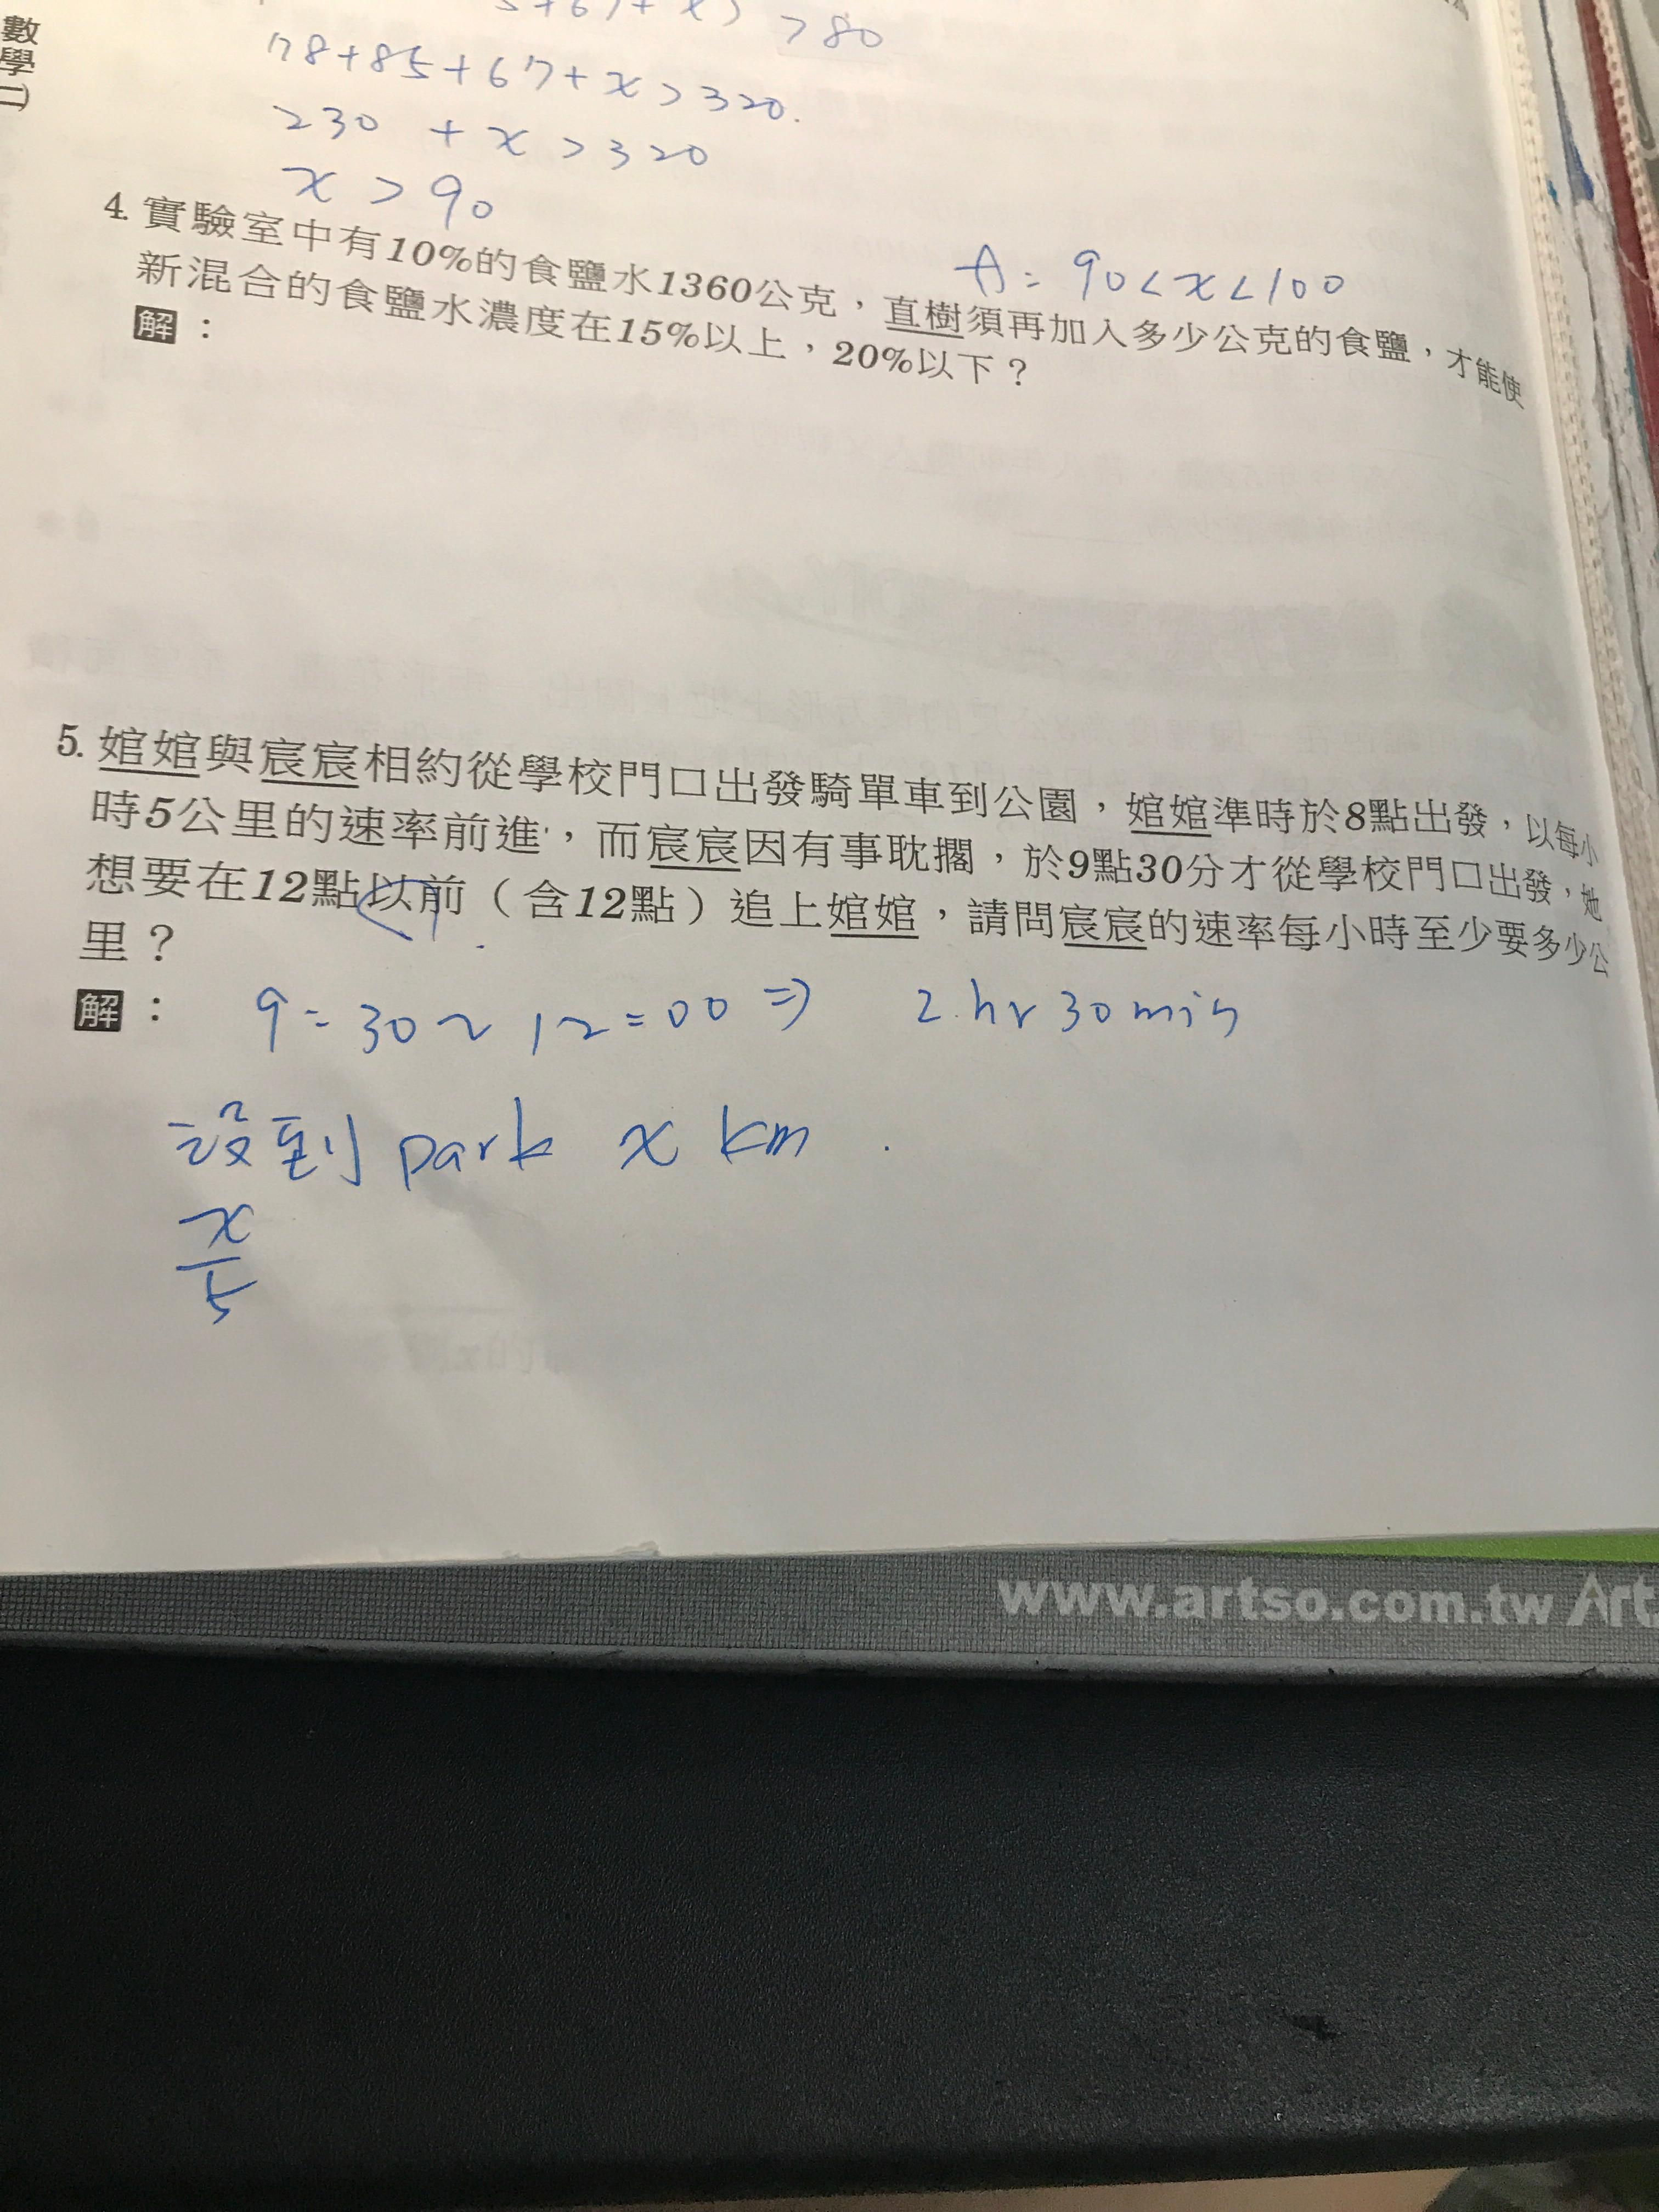 數學(二)
5+67+x) >80
78+85+67+x>320.
230 + x >320
x >90
A= 90<x<100
4. 實驗室中有10%的食鹽水1360公克，直樹須再加入多少公克的食鹽，才能使
新混合的食鹽水濃度在15%以上，20%以下？
解：
5. 婠婠與宸宸相約從學校門口出發騎單車到公園，婠婠準時於8點出發，以每小
時5公里的速率前進，而宸宸因有事耽擱，於9點30分才從學校門口出發，她
想要在12點以前（含12點）追上婠婠，請問宸宸的速率每小時至少要多少公
里？
解： 9=30~12=00 ⇒ 2.hr 30 min
設到 park x km .
x
5
www.artso.com.tw Art